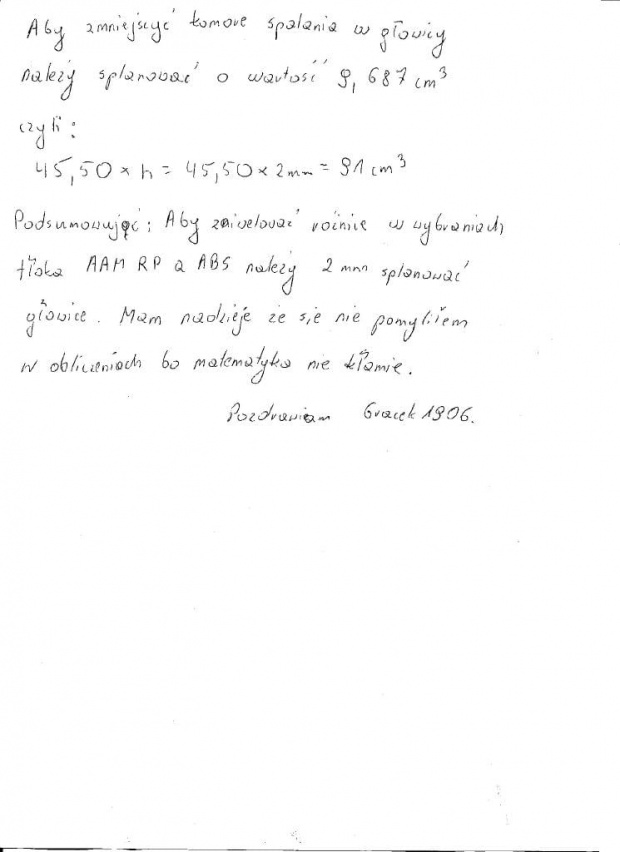 Aby zmniejszyć komore spalania w głowicy
należy splanować o wartość 9,687 cm³
czyli:
45,50 × h = 45,50 × 2mm = 91 cm³
Podsumowując: Aby zniwelować różnice w wybraniach
tłoka AAM RP a ABS należy 2 mm splanować
głowice. Mam nadzieje że się nie pomyliłem
w obliczeniach bo matematyka nie kłamie.
Pozdrawiam Gracek1906.